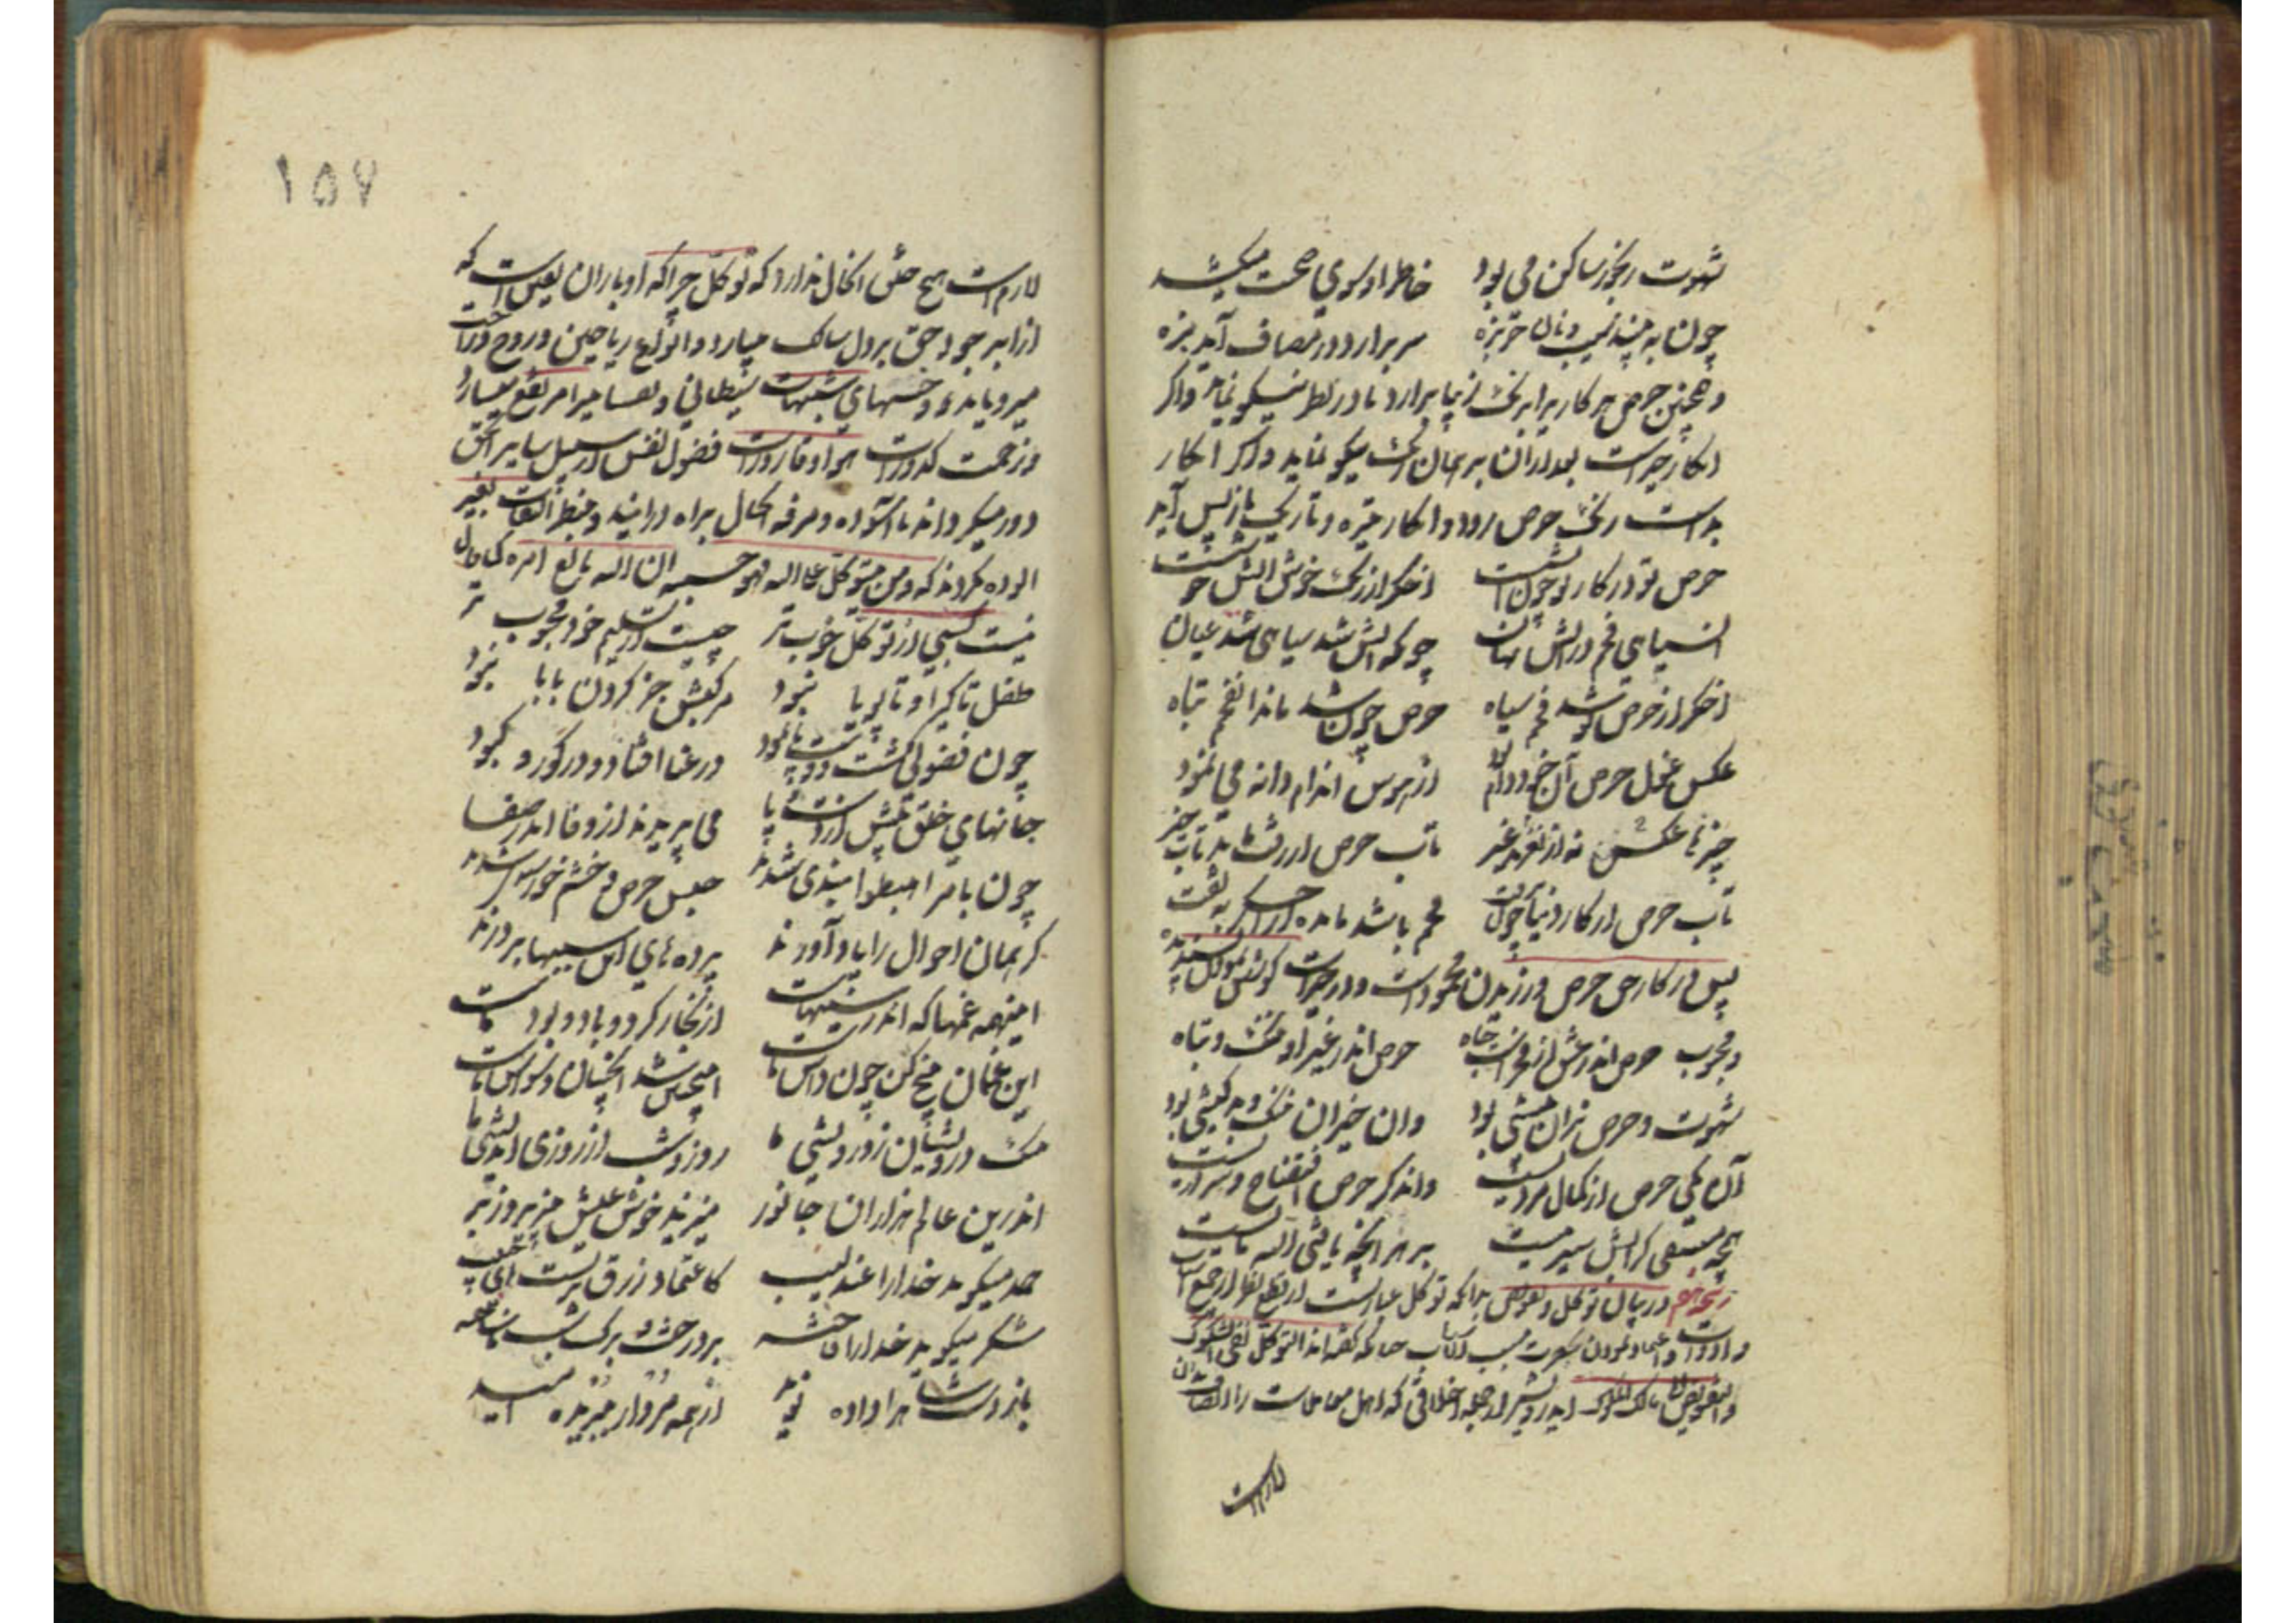 شهوت رنجور ساکن می بود خاطر او سوی صحت میکشد
چون به بیند سیب و نان خربزه سر برارد در مصاف آید بزه
و همچنین حرص هر کار برابر نک زیبا برارد تا در نظر نیکو نماید و اگر
انکار خیر است بعد ازان بر همان رنگ نیکو نماید و اگر انکار
بد است رنگ حرص رود و انکار تیره و تاریک باز پس آید
حرص تو در کار بد چون آتش است اخگر از رنگ خوش آتش خوشست
ان سیاهی فحم در آتش نهان چونکه آتش شد سیاهی شد عیان
اخگر از حرص تو شد فحم سیاه حرص چون شد ماند ان فحم تباه
عکس غول حرص آن خود دام بود از هوس اندام دانه می نمود
خیرها نغزند نه از عکس غیر تاب حرص ار رفت ماند تاب خیر
تاب حرص از کار دنیا چون برفت فحم باشد مانده از اخگر به تفت
پس در کار حق حرص ورزیدن محمود است و در خیرات کوشش نمودن پسندیده
و محبوب حرص اندر عشق او فخرست و جاه حرص اندر غیر او ننگ و تباه
شهوت و حرص نران پیشی بود وان حیزان ننگ و بدکیشی بود
آن یکی حرص از کمال مردیست واندگر حرص افتضاح و سردیست
همچو مستسقی کز آبش سیر نیست بر هر آنچه یافتی الله مایست
در بیان توکل و تفویض بدانکه توکل عبارتست از قطع نظر از جمع اسباب
و ادوات و اعتماد نمودن بر مسبب الاسباب چنانکه گفته اند التوکل نفی الشکوک
والتفویض الی مالک الملوک ای درویش از جمله اخلاقی که اهل معاملات را اتصاف بدان
لازم است
۱۵۷
لازم است هیچ خلق انحال ندارد که توکل چرا که او باران یقین است که
از ابر جود حق بر دل سالک میبارد و انواع ریاحین و روح و راحت
میرویاند و خسهای شبهات شیطانی
و زحمت کدورات هوا و قاذورات فضول نفس از سبیل سایر الی الحق
دور میگرداند تا آسوده و مرفه الحال براه در آیند و بنظر التفات بغیر
الوده نگردند که و من یتوکل علی الله فهو حسبه ان الله بالغ امره کما قال
نیست کسبی از توکل خوب تر چیست از تسلیم خود محبوب تر
طفل تا گیرا و تا پویا نبود مرکبش جز گردن بابا نبود
چون فضولی گشت و دست و پا نمود در عنا افتاد و در کور و کبود
جانهای خلق پیش از دست و پا می پریدند از وفا اندر صفا
چون بامر اهبطوا بندی شدند حبس حرص و خشم و خورسندی شدند
کریمان احوال را یاد آورند پرده های این سببها بردرند
اینهمه غمها که اندر سینهاست از بخار گرد و باد و بود ماست
این غمان بیخ کن چون داس ماست اینچنین شد و انچنان وسواس ماست
ننگ درویشان ز درویشی ما روز و شب از روزی اندیشی ما
اندرین عالم هزاران جانور میزیند خوش عیش بی زیر و زبر
حمد میگوید خدا را عندلیب کاعتماد رزق بر تست ای مجیب
شکر میگوید خدا را فاخته بر درخت و برگ شب ناساخته
باز دست شاه را داده نوید از همه مردار ببریده امید